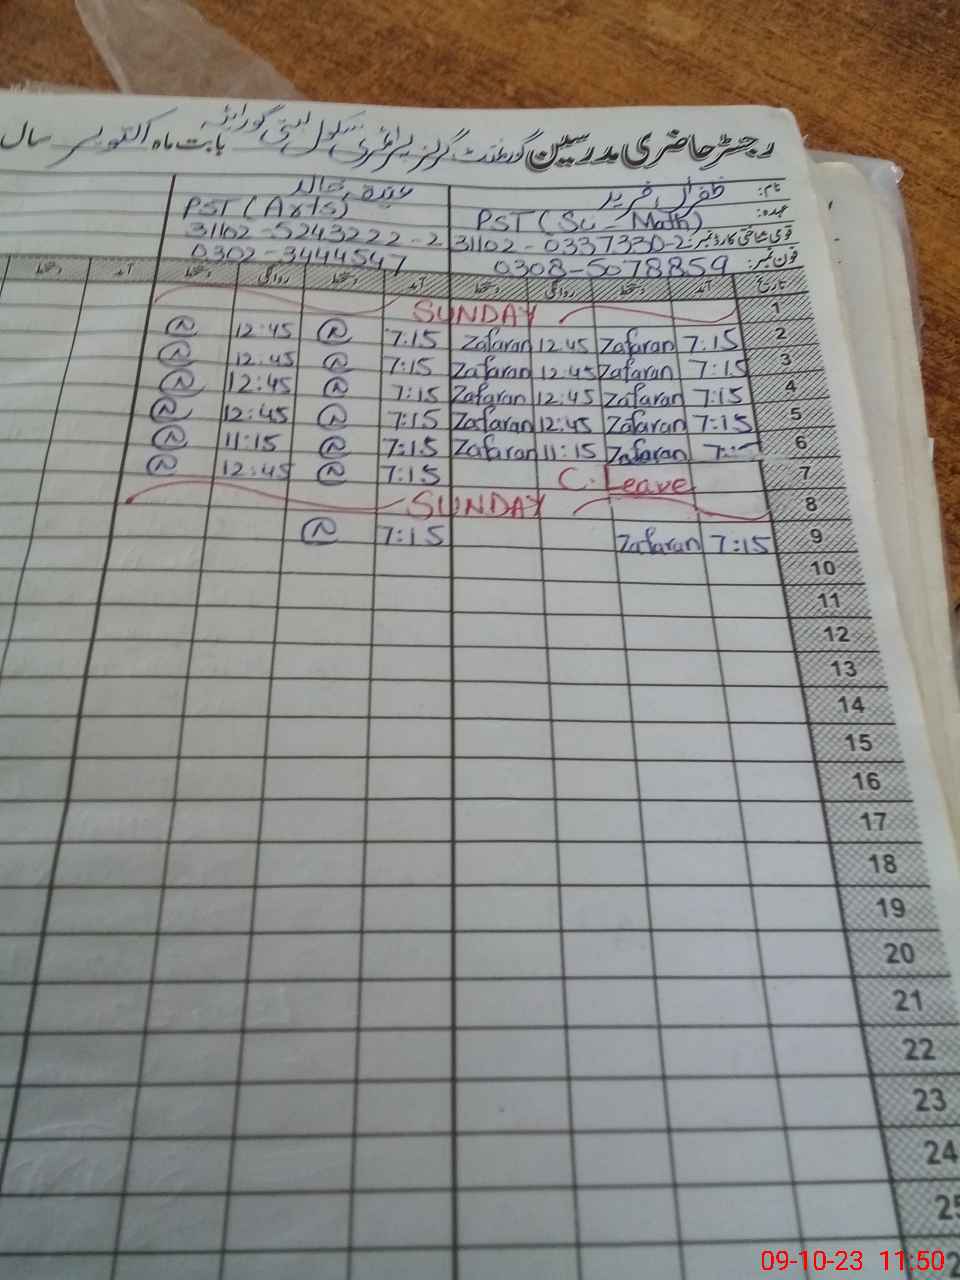 رجسٹر حاضری مدرسین گورنمنٹ گرلز پرائمری سکول بستی گورایہ بابت ماہ اکتوبر سال
نام: زعفران فرید
عہدہ: PST (Sci - Math) PST (Arts)
قومی شناختی کارڈ نمبر: 31102-0337330-2 31102-5243222-2
فون نمبر: 0308-5078859 0302-3444547
تاریخ آمد دستخط روانگی دستخط آمد دستخط روانگی دستخط آمد دستخط
1 SUNDAY
2 7:15 Zafaran 12:45 Zafaran 7:15 12:45
3 7:15 Zafaran 12:45 Zafaran 7:15 12:45
4 7:15 Zafaran 12:45 Zafaran 7:15 12:45
5 7:15 Zafaran 12:45 Zafaran 7:15 12:45
6 Zafaran 11:15 Zafaran 7:15 11:15
7 C. Leave 7:15 12:45
8 SUNDAY
9 7:15 Zafaran 7:15
10
11
12
13
14
15
16
17
18
19
20
21
22
23
24
25
09-10-23 11:50